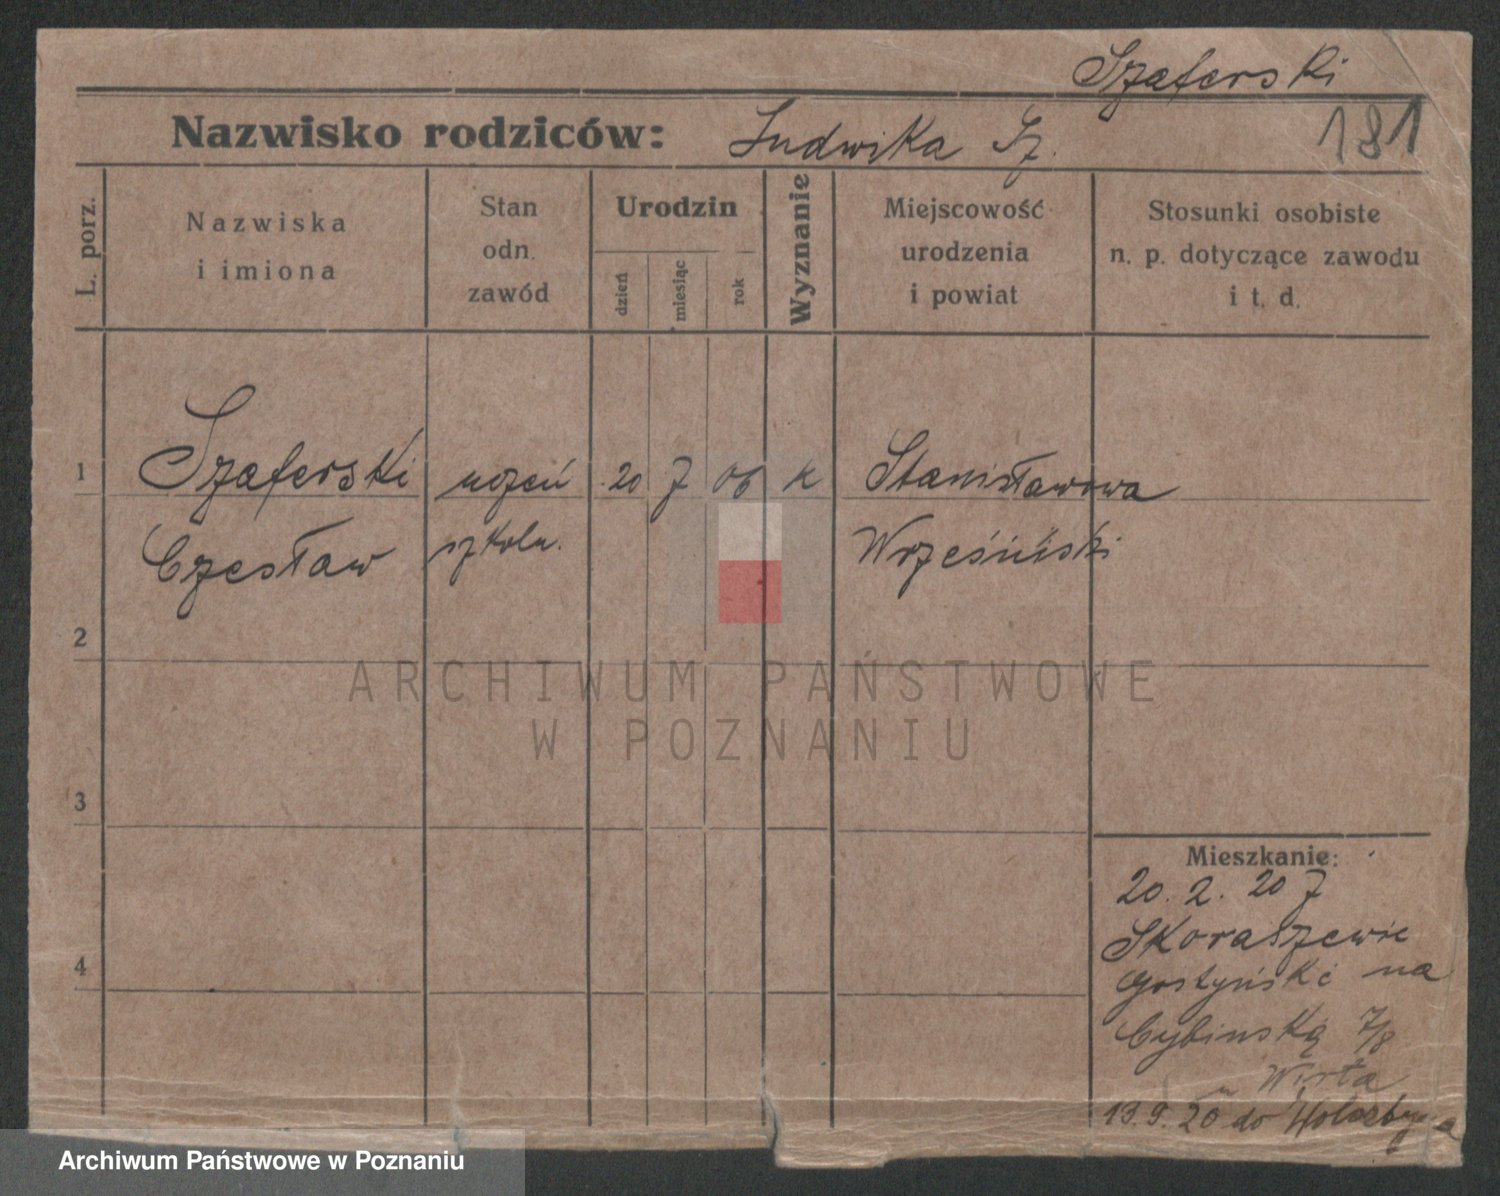 Szaferski
Nazwisko rodziców: Ludwika Sz.
181
L. porz.
Nazwiska
i imiona
Stan
odn.
zawód
Urodzin
dzień
miesiąc
rok
Wyznanie
Miejscowość
urodzenia
i powiat
Stosunki osobiste
n. p. dotyczące zawodu
i t. d.
1
Szaferski uczeń 20 7 06 k Stanisławowa
Czesław szkoln. Wrzesiński
2
ARCHIWUM PAŃSTWOWE
W POZNANIU
3
Mieszkanie:
20. 2. 20 7
Skoraszewic
4
gostyński na
Cybińską 7/8
13. 9. 20 do
Archiwum Państwowe w Poznaniu